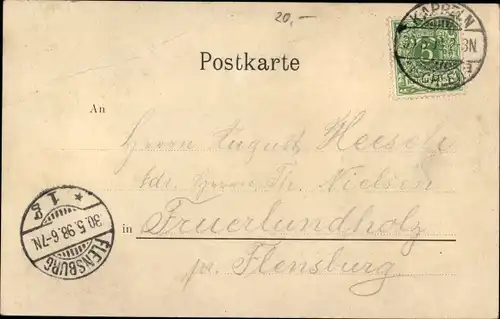 20,-
KAPPELN
Postkarte
5
(SCHLEI)
An
Herrn August Heesch
Adr. Herrn Th. Nielsen
in Fruerlundholz
pr. Flensburg
* 1 g
30.5.98.6-7N
FLENSBURG